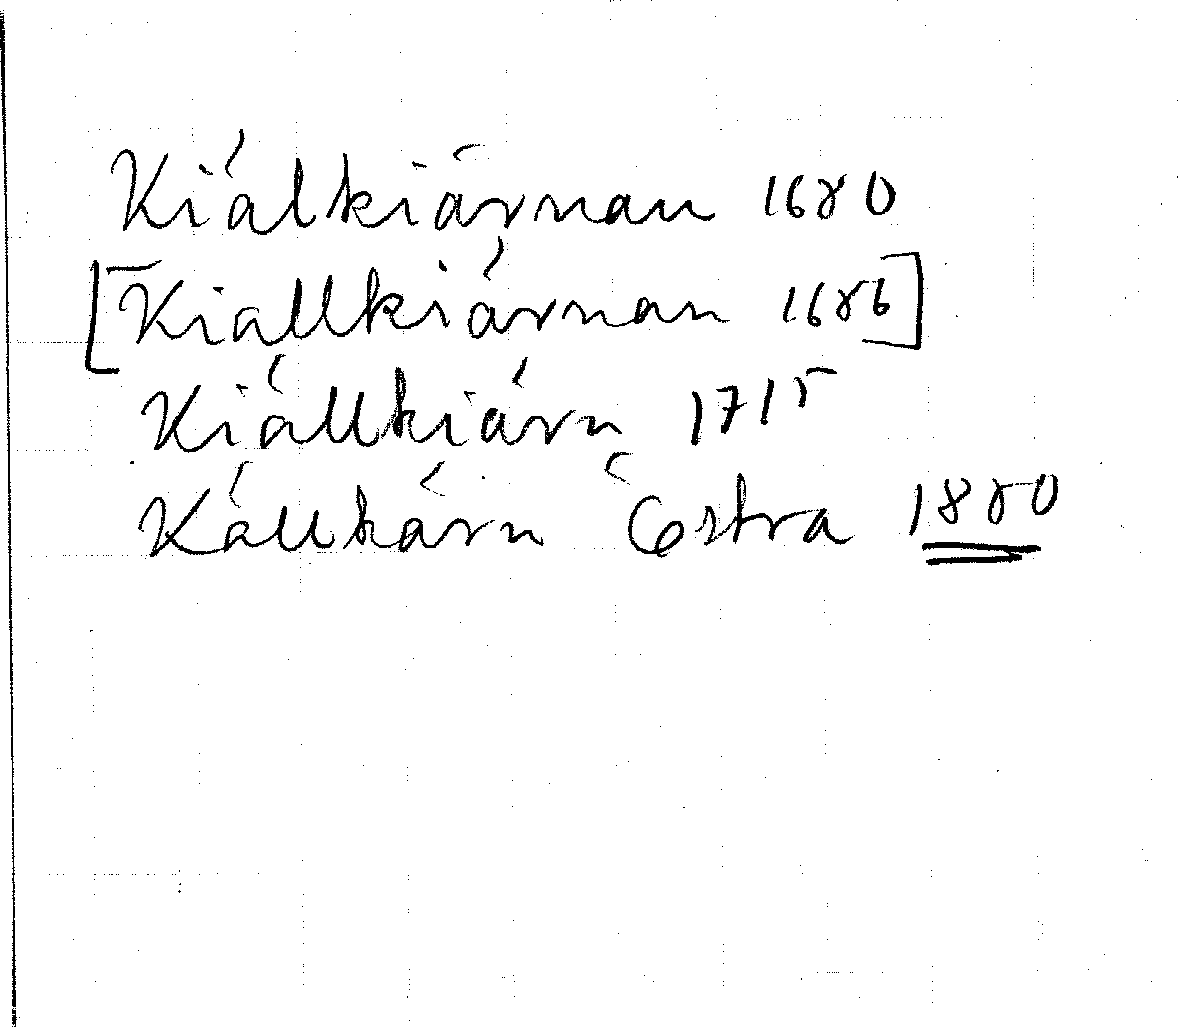 Kiälkiärnan 1680
[Kiallkiärnan 1686]
Kiällkiärn 1715
Källkärn Östra 1880